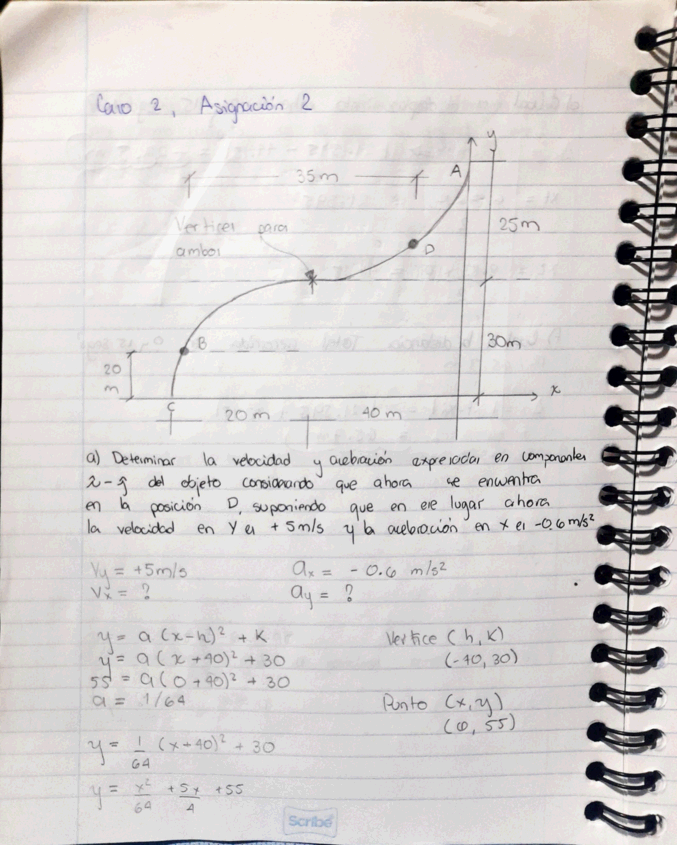 Caso 2, Asignación 2
y
A
35m
Vertices para
ambos
D
25m
B
30m
20
m
x
C
20 m
40 m
a) Determinar la velocidad y aceleración expresadas en componentes
x-y del objeto considerando que ahora se encuentra
en la posición D, suponiendo que en ese lugar ahora
la velocidad en Y es +5m/s y la aceleración en x es -0.6 m/s²
Vy = +5m/s ax = -0.6 m/s²
Vx = ? ay = ?
y = a (x-h)² + K Vertice (h, K)
y = a (x+40)² + 30 (-40, 30)
55 = a(0+40)² + 30
a = 1/64 Punto (x, y)
(0, 55)
y = 1/64 (x+40)² + 30
y = x²/64 + 5x/4 + 55
Scribe